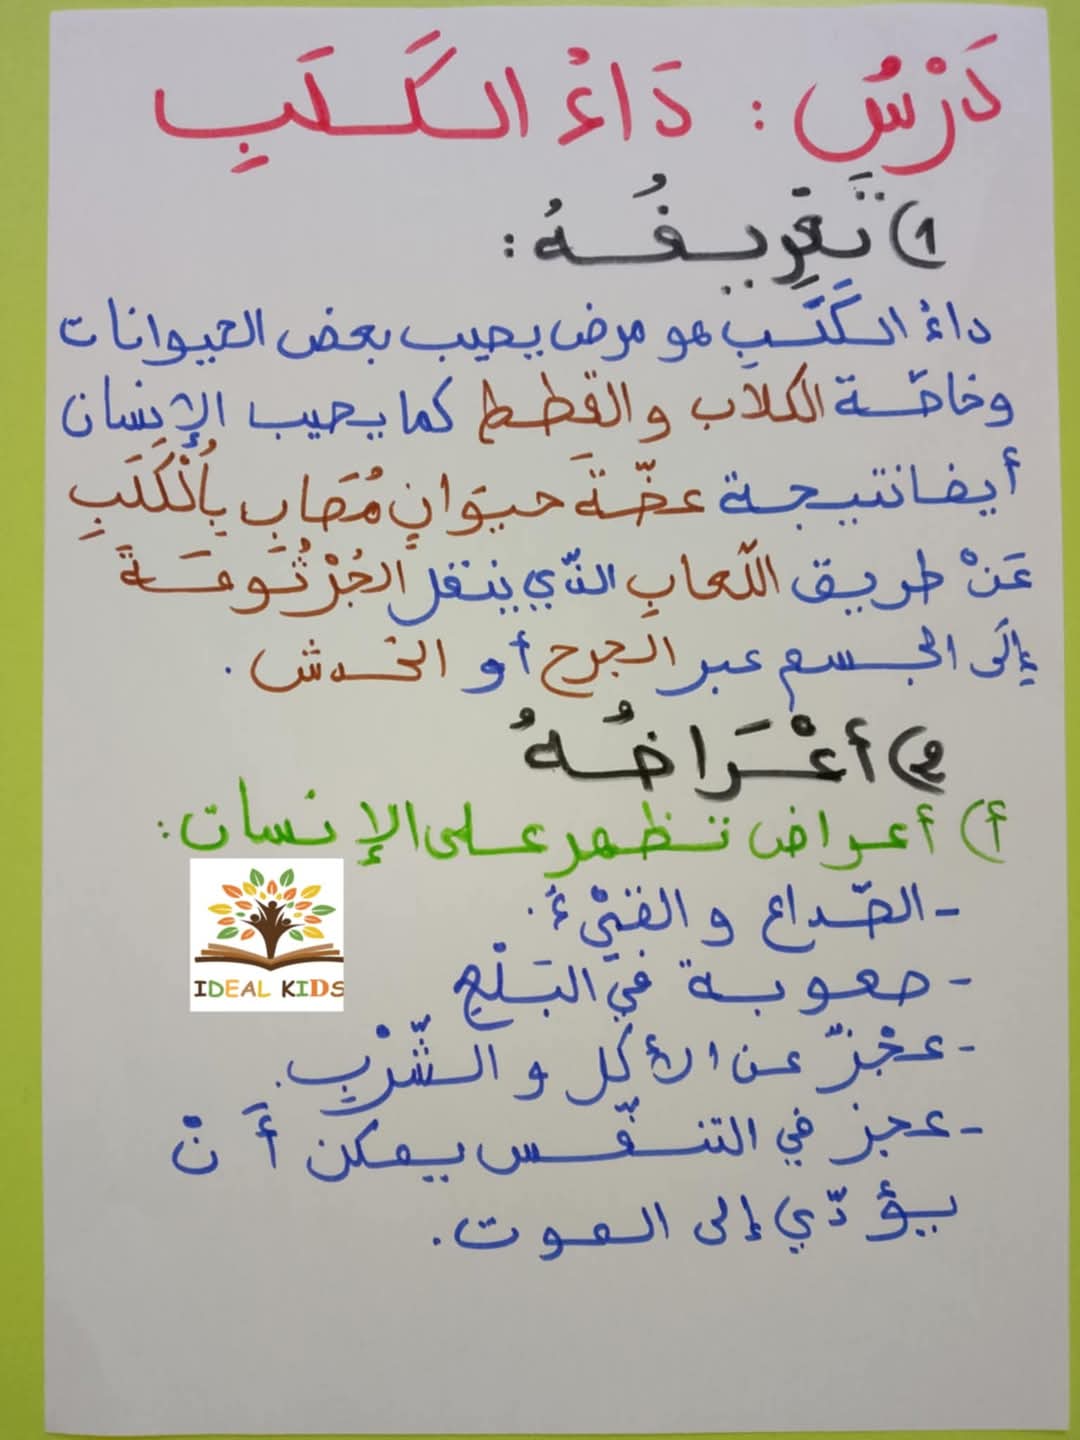 دَرْسُ : دَاءُ الكَلَبِ
1) تَعْرِيفُهُ :
داءُ الكَلَبِ هو مرض يصيب بعض الحيوانات
وخاصّة الكلاب والقطط كما يصيب الإنسان
أيضا نتيجة عضّةَ حيوَانٍ مُصَابِ بِاُلْكَلَبِ
عَنْ طريق اللّعابِ الذّي ينقل الجُرْثُومَةَ
إلَى الجسم عبر الجرح أو الخدش .
2) أعْرَاضُهُ
أ) أعراض تظهر على الإنسان :
- الصّداع و القَيْءُ .
- صعوبة في البَلْعِ
- عجْزٌ عن الأكل و الشّرْبِ .
- عجز في التنفّس يمكن أَنْ
يؤدّي إلى الموت .
IDEAL KIDS